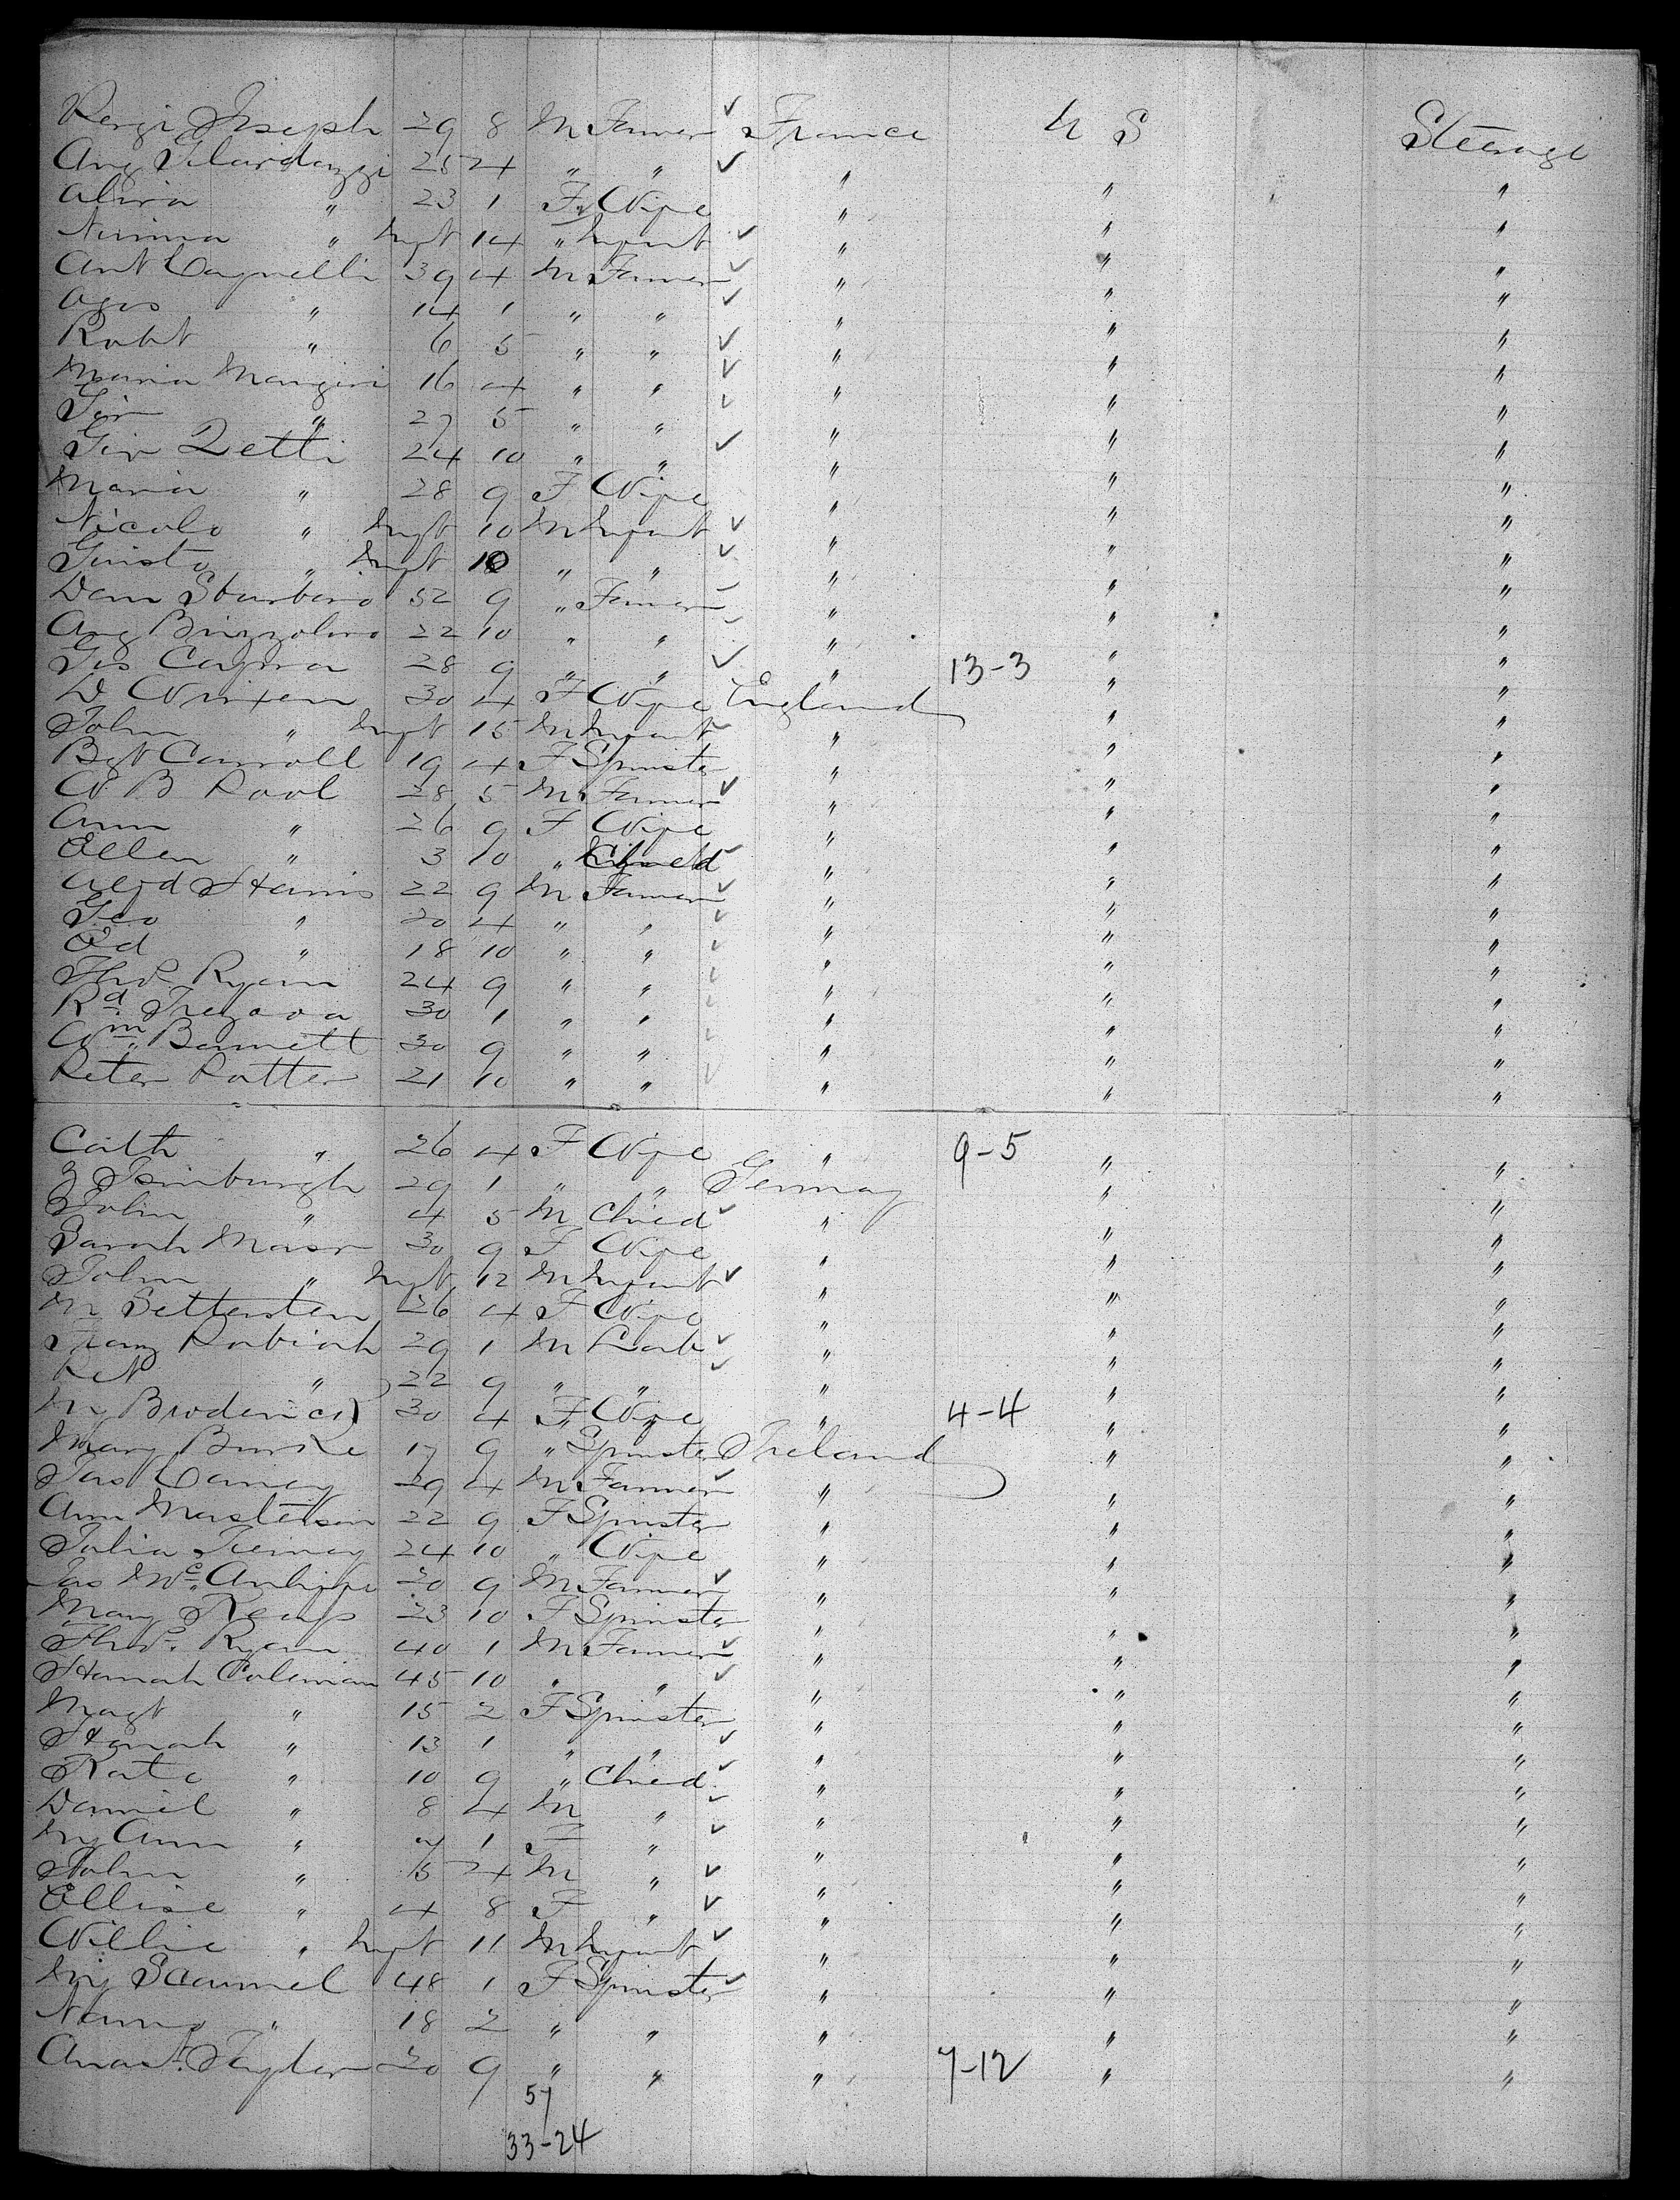 Joseph 29 8 M Farmer ✓ France U S Steerage
Ang 25 4 " " ✓ " " "
" 23 1 F Wife " " "
" Inft 14 " Infant ✓ " " "
Ant 39 4 M Farmer ✓ " " "
" 14 1 " " ✓ " " "
Robt " 6 5 " " ✓ " " "
Maria Mangini 16 4 " " ✓ " " "
Gio " 27 5 " " ✓ " " "
Gio Zetti 24 10 " " ✓ " " "
Maria " 28 9 F Wife " " "
Nicolo " Inft 10 M Infant ✓ " " "
Giusto " Inft 10 " " ✓ " " "
Dom Sbarboro 52 9 " Farmer ✓ " " "
Ang Brizzolara 22 10 " " ✓ " " "
28 9 " " ✓ " 13-3 " "
30 4 F Wife England " "
John " Inft 15 M Infant ✓ " " "
Bgt Carroll 19 4 F Spinster " " "
W B Pool 28 5 M Farmer ✓ " " "
Ann " 26 9 F Wife " " "
Ellen " 3 10 " Child ✓ " " "
Alfd Harris 22 9 M Farmer ✓ " " "
Geo " 20 4 " " ✓ " " "
Ed " 18 10 " " ✓ " " "
Thos Ryan 24 9 " " ✓ " " "
Rd 30 1 " " ✓ " " "
Wm Bennett 30 9 " " ✓ " " "
Peter Potter 21 10 " " ✓ " " "
Cath " 26 4 F Wife " 9-5 " "
29 1 " " Germay " "
John " 4 5 M Child ✓ " " "
Sarah 30 9 F Wife " " "
John " Inft 12 M Infant ✓ " " "
M 26 4 F Wife " " "
Franz 29 1 M Lab ✓ " " "
" 22 9 " " ✓ " " "
My Broderick 30 4 F Wife " 4-4 " "
Mary Burke 17 9 " Spinster Ireland " "
Jas 29 4 M Farmer ✓ " " "
Ann Masterson 22 9 F Spinster " " "
Julia 24 10 " Wife " " "
Jas 20 9 M Farmer ✓ " " "
Mary 23 10 F Spinster " " "
Thos Ryan 40 1 M Farmer ✓ " " "
Hanah Coleman 45 10 " " ✓ " " "
Magt " 15 2 F Spinster " " "
Hanah " 13 1 " " ✓ " " "
Kate " 10 9 " Child ✓ " " "
Daniel " 8 4 M " ✓ " " "
My Ann " 7 1 F " ✓ " " "
John " 5 4 M " ✓ " " "
Ellise " 4 8 F " ✓ " " "
Willie " Inft 11 M Infant ✓ " " "
My Scannel 48 1 F Spinster ✓ " " "
" 18 2 " " " " "
Anast Taylor 20 9 " " " 7-12 " "
57
33-24